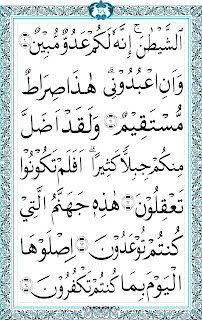 الشَّيْطٰنَ ۚ اِنَّهٗ لَكُمْ عَدُوٌّ مُّبِيْنٌ
وَّاَنِ اعْبُدُوْنِيْ ۗ هٰذَا صِرَاطٌ
مُّسْتَقِيْمٌ وَلَقَدْ اَضَلَّ
مِنْكُمْ جِبِلًّا كَثِيْرًا ۗ اَفَلَمْ تَكُوْنُوْا
تَعْقِلُوْنَ هٰذِهٖ جَهَنَّمُ الَّتِيْ
كُنْتُمْ تُوْعَدُوْنَ اِصْلَوْهَا
الْيَوْمَ بِمَا كُنْتُمْ تَكْفُرُوْنَ